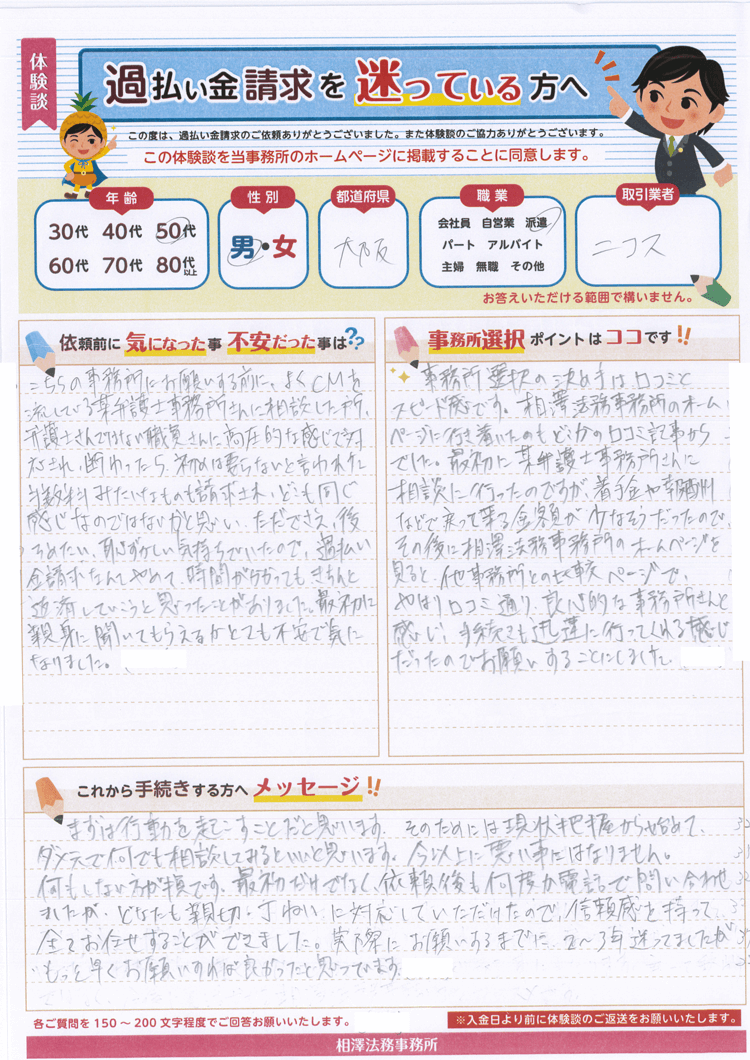 体験談
過払い金請求を 迷っている 方へ
この度は、過払い金請求のご依頼ありがとうございました。また体験談のご協力ありがとうございます。
この体験談を当事務所のホームページに掲載することに同意します。
年齢
30代 40代 50代
60代 70代 80代以上
性別
男・女
都道府県
大阪
職業
会社員 自営業 派遣
パート アルバイト
主婦 無職 その他
取引業者
ニコス
お答えいただける範囲で構いません。
依頼前に 気になった事 不安だった事は??
こちらの事務所にお願いする前に、よくCMを
流している某弁護士事務所さんに相談した所、
弁護士さんではない職員さんに高圧的な感じで対
応され、断わったら、初めは要らないと言われた
手数料みたいなものも請求され、どこも同じ
感じなのではないかと思い、ただでさえ、後
ろめたい、恥ずかしい気持ちでいたので、過払い
金請求なんてやめて、時間がかかってもきちんと
返済していこうと思ったことがありました。最初に
親身に聞いてもらえるかとても不安で気に
なりました。
事務所選択 ポイントは ココです!!
事務所選択の決め手は口コミと
スピード感です。相澤法務事務所のホーム
ページに行き着いたのもどこかの口コミ記事から
でした。最初に某弁護士事務所さんに
相談に行ったのですが、着手金や報酬
などで戻って来る金額が少なそうだったので、
その後に相澤法務事務所のホームページを
見ると、他事務所との比較ページで、
やはり口コミ通り、良心的な事務所さんと
感じ、手続きも迅速に行ってくれる感じ
だったのでお願いすることにしました。
これから手続きする方へ メッセージ!!
まずは行動を起こすことだと思います。そのためには現状把握から始めて、
ダメ元で何でも相談してみるといいと思います。今以上に悪い事にはなりません。
何もしない方が損です。最初だけでなく、依頼後も何度か電話で問い合わせ
ましたが、どなたも親切・丁ねいに対応していただけたので、信頼感を持って、
全てお任せすることができました。実際にお願いするまでに、2〜3年迷ってましたが
もっと早くお願いすれば良かったと思っています。
各ご質問を150〜200文字程度でご回答お願いいたします。
※入金日より前に体験談のご返送をお願いいたします。
相澤法務事務所